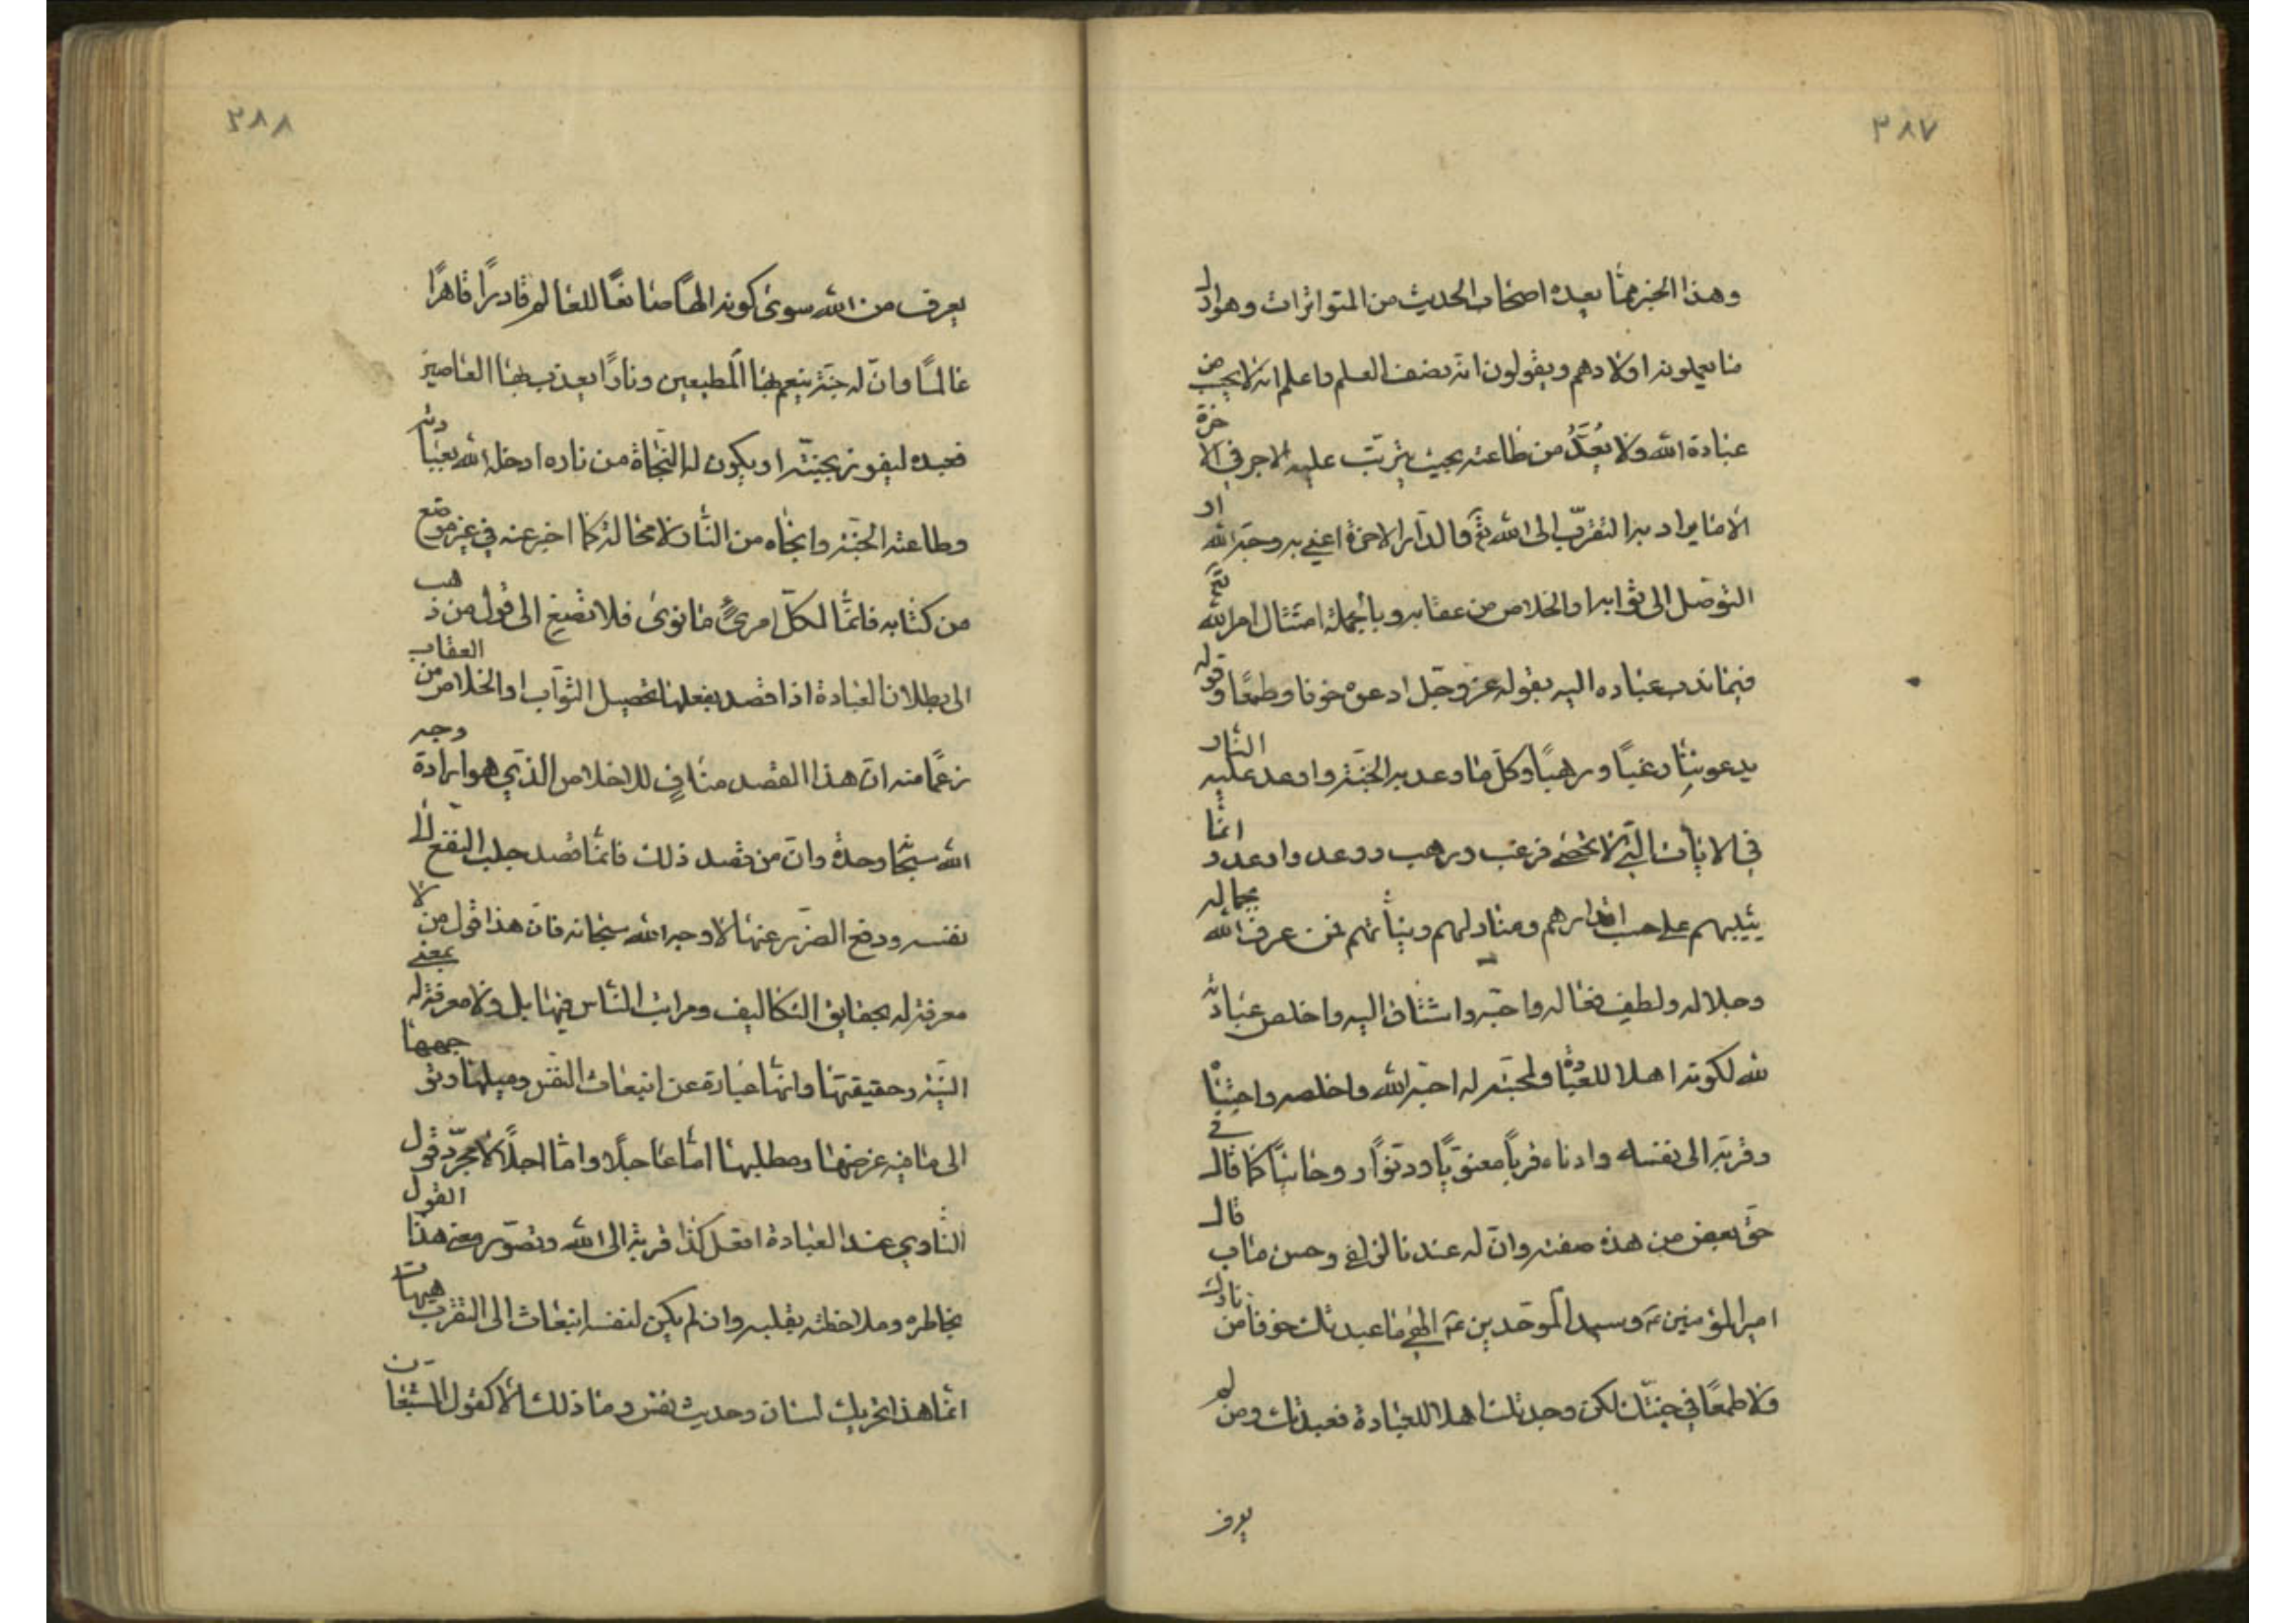 ٣٨٧
وهذا الخبر ممّا يعده اصحاب الحديث من المتواترات وهو اول
ما يعلمونه اولادهم ويقولون انه نصف العلم واعلم انه لا يجب من
عبادة الله ولا يُعَدُّ من طاعته بحيث يترتّب عليه الاجر في الاخرة
الا ما يراد به التقرّب الى الله تع والدار الاخرة اعني به وجه الله او
التوصّل الى ثوابه او الخلاص من عقابه وبالجملة امتثال امر الله تع
فيما ندب عباده اليه بقوله عز وجل ادعوه خوفا وطمعًا وقوله
يدعوننا رغبًا ورهبًا وكلّ ما وعد به الجنّة واوعد عليه النار
في الايات التي لا تحصى فرغب ورهب ووعد واوعد وانما
يثيبهم على حسب اقدارهم ومنازلهم ونيّاتهم فمن عرف الله بجماله
وجلاله ولطف فعاله واحبّه واشتاق اليه واخلص عبادته
لله لكونه اهلا للعبادة ولمحبّته له احبّه الله واخلصه واجتباه
وقرّبه الى نفسه وادناه قربًا معنويًّا ودنوًّا روحانيًّا كما قال في
حقّ بعض من هذه صفته وانّ له عندنا لزلفى وحسن ماب قال
امير المؤمنين ع وسيد الموحّدين ع الهي ما عبدتك خوفا من نارك
ولا طمعًا في جنّتك لكن وجدتك اهلا للعبادة فعبدتك ومن لم
يعرف
٣٨٨
يعرف من الله سوى كونه الهًا صانعًا للعالم قادرًا قاهرًا
عالمًا وانّ له جنّة ينعم بها المطيعين ونارًا يعذب بها العاصين
فعبده ليفوز بجنّته او يكون له النّجاة من ناره ادخله الله بعبادته
وطاعته الجنّة وانجاه من النّار لا محالة كما اخبر عنه في غير موضع
من كتابه فانّما لكلّ امرئٍ ما نوى فلا تصغ الى قول من ذهب
الى بطلان العبادة اذا قصد بفعلها تحصيل الثواب او الخلاص من العقاب
زعمًا منه انّ هذا القصد منافٍ للاخلاص الذي هو ارادة وجه
الله سبحانه وحده وانّ من قصد ذلك فانّما قصد جلب النفع الى
نفسه ودفع الضّرر عنها لا وجه الله سبحانه فانّ هذا قول من لا
معرفة له بحقايق التكاليف ومراتب النّاس فيها بل ولا معرفة له بمعنى
النيّة وحقيقتها وانّها عبارة عن انبعاث النفس وميلها وتوجهها
الى ما فيه غرضها ومطلبها امّا عاجلًا وامّا اجلًا لا مجرّد قول
النّاوي عند العبادة افعل كذا قربة الى الله وتصوّر معنى هذا القول
بخاطره وملاحظته بقلبه وان لم يكن لنفسه انبعاث الى التقرب هيهات
انّما هذا تحريك لسان وحديث نفس وما ذلك الّا كقول الشبعان